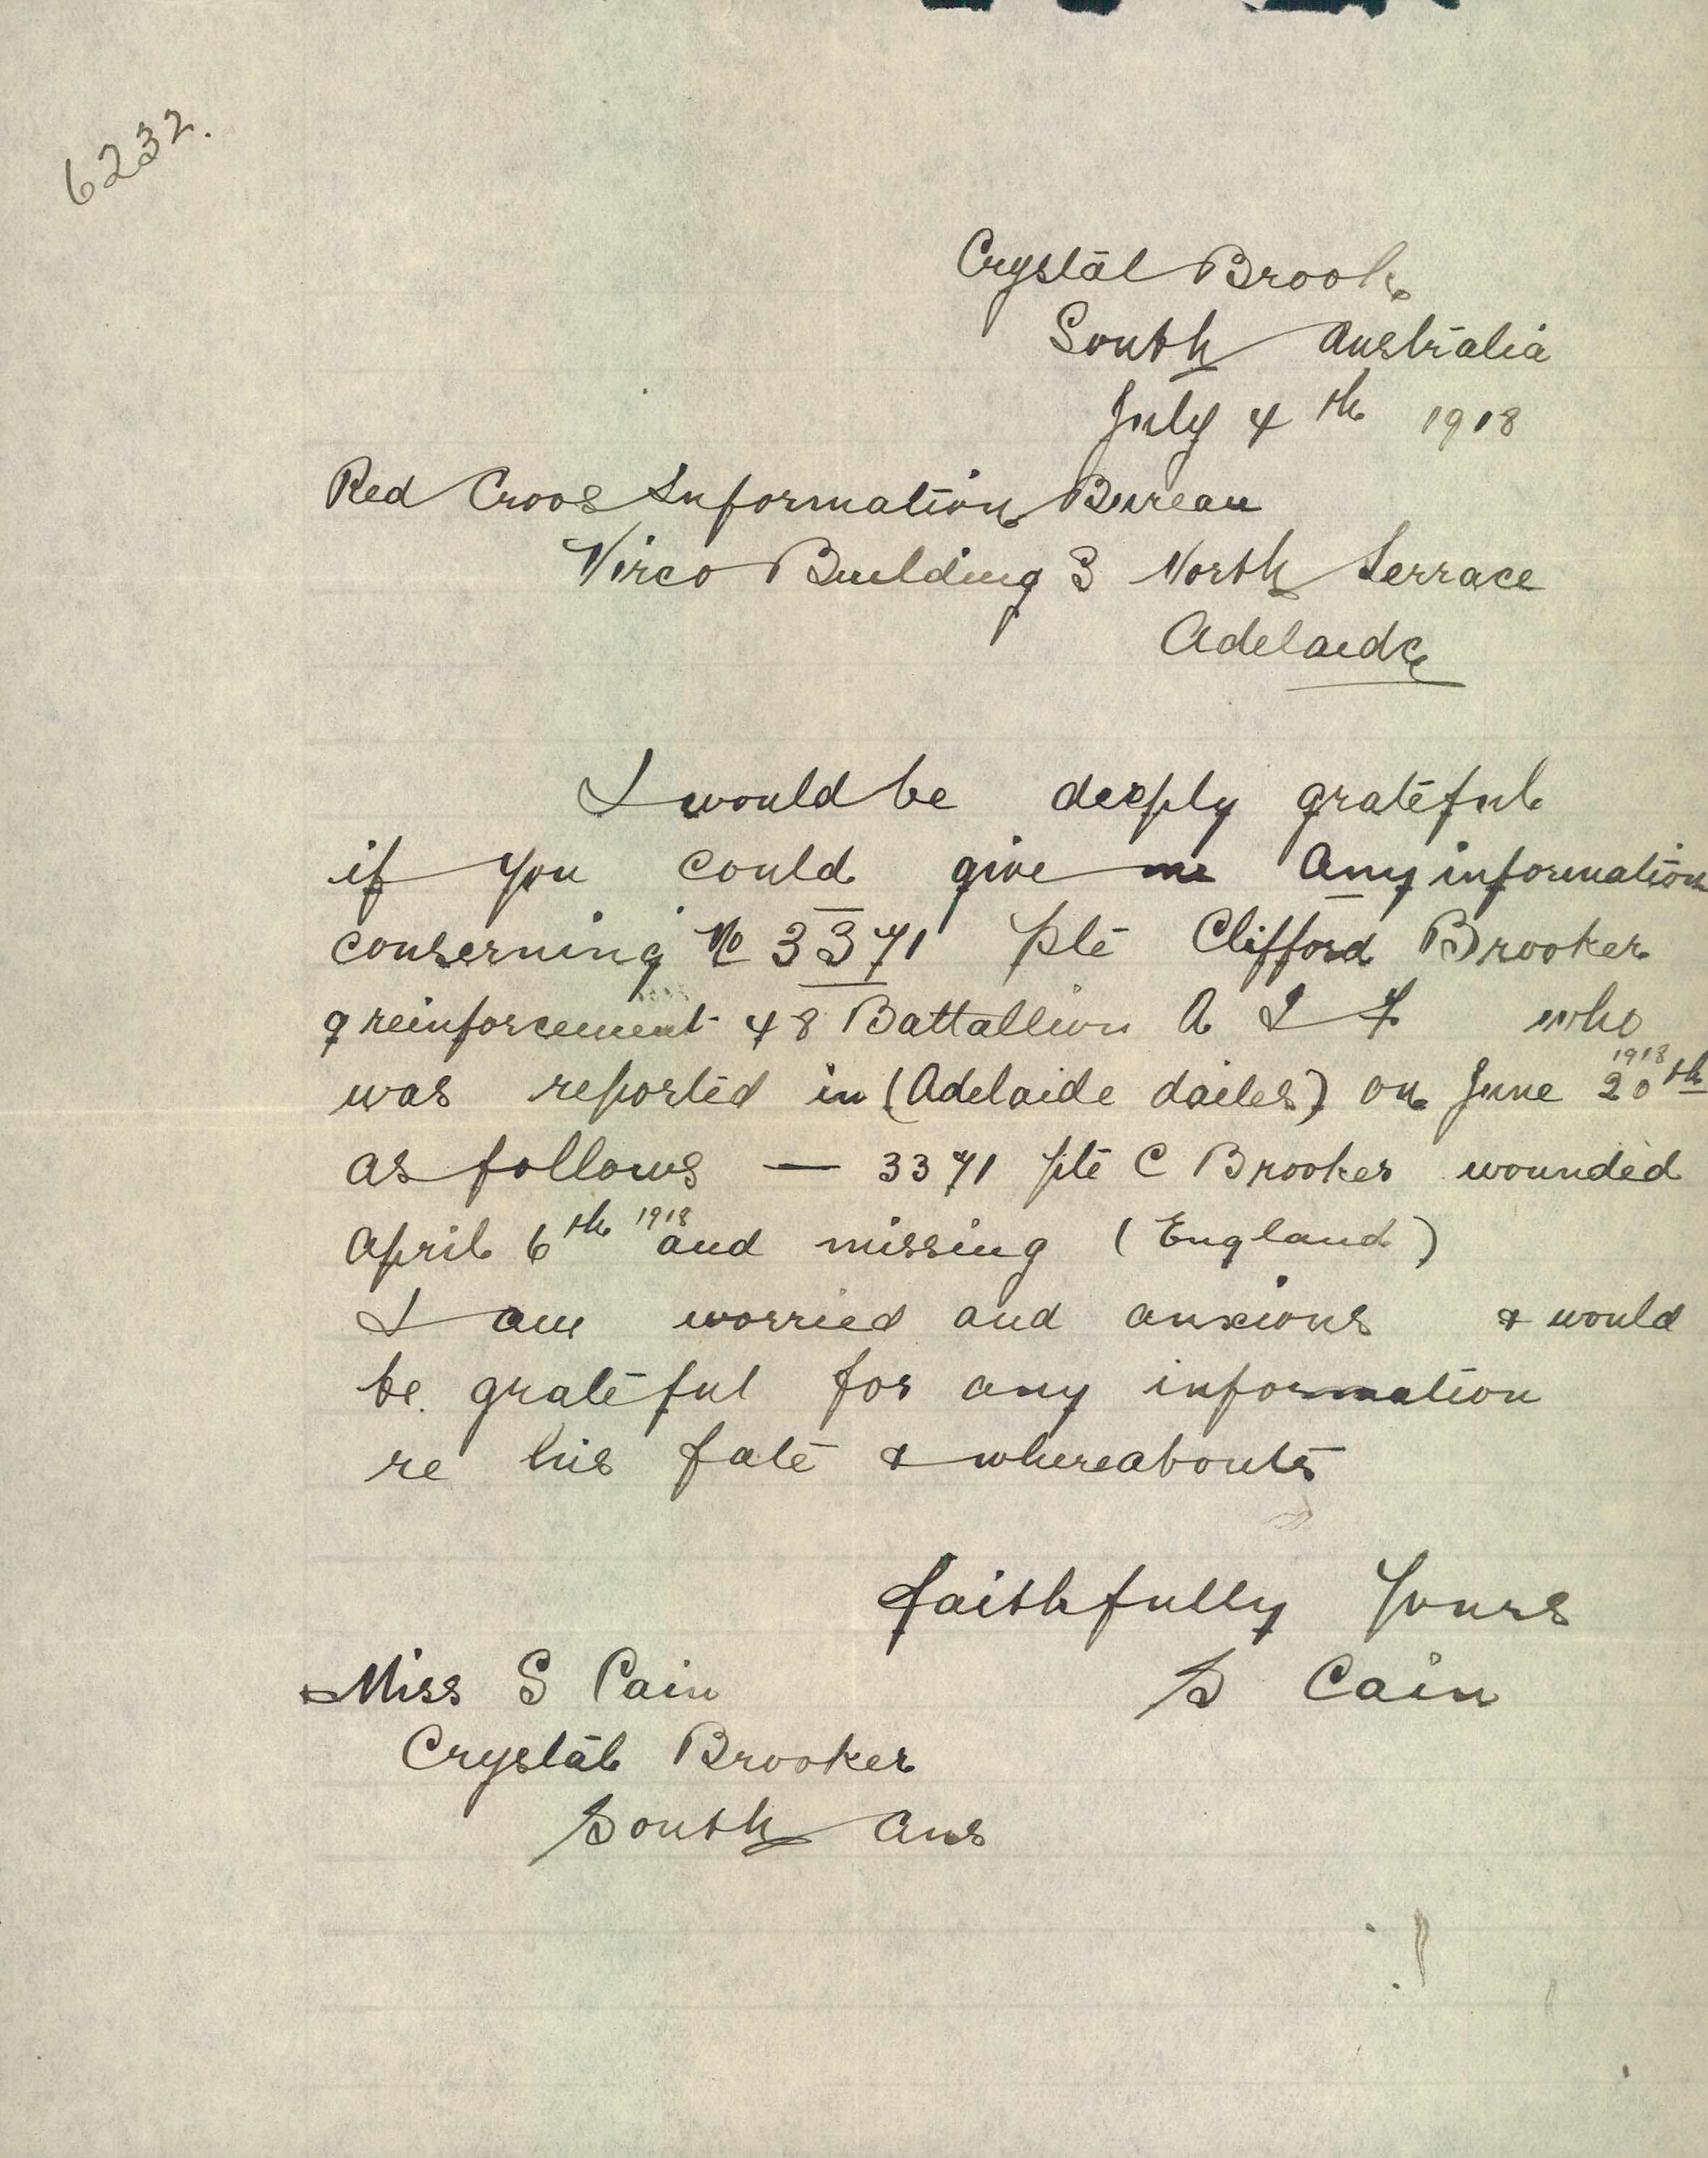 6232.
Crystal Brook
South Australia
July 4th 1918
Red Croos Information Bureau
Virco Building S North Terrace
Adelaide
I would be deeply grateful
if you could give me any information
conserning No 3371 Pte Clifford Brooker
9 reinforcement 48 Battallion A I F who
was reported in (Adelaide dailes) on June 20th 1918
as follows — 3371 Pte C Brooker wounded
April 6th 1918 and missing (England)
I am worried and anxious & would
be grateful for any information
re his fate & whereabouts
faithfully Yours
S Cain
Miss S Cain
Crystal Brooker
South Aus